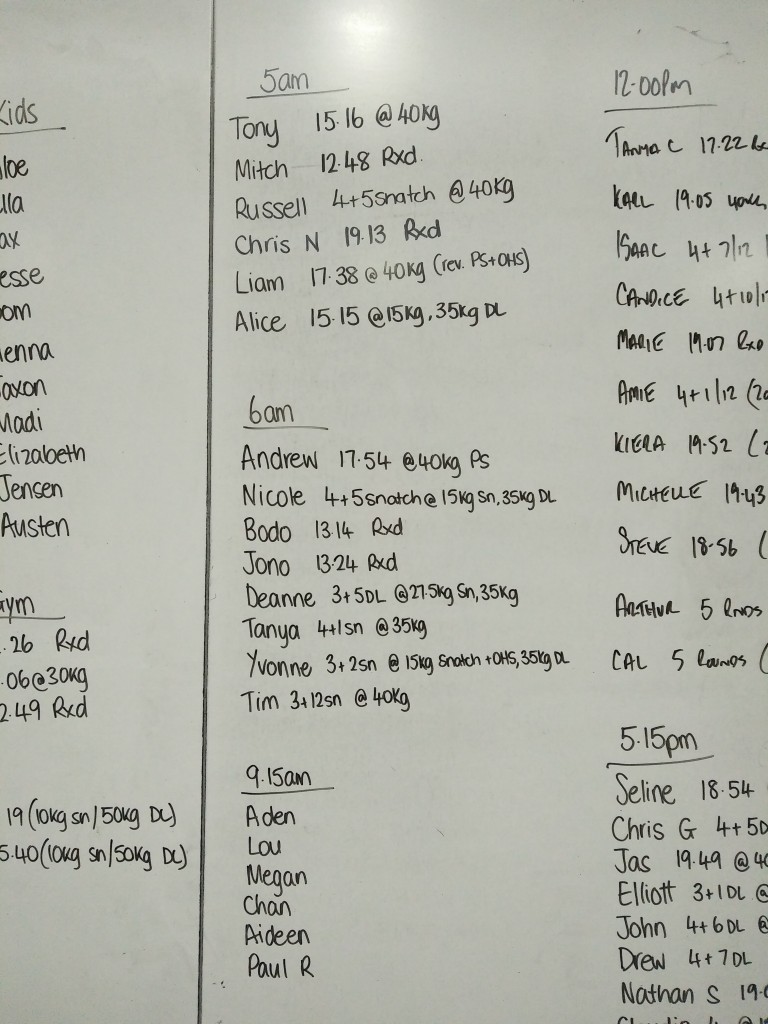 Kids
loe
lla
ax
esse
om
ienna
Jaxon
Madi
Elizabeth
Jensen
Austen
Gym
.26 Rxd
.06@30kg
2.49 Rxd
19 (10kg sn/50kg DL)
5.40 (10kg sn/50kg DL)
5am
Tony 15.16 @ 40kg
Mitch 12.48 Rxd.
Russell 4+5snatch @ 40kg
Chris N 19.13 Rxd
Liam 17.38 @ 40kg (rev. PS+OHS)
Alice 15.15 @15kg, 35kg DL
6am
Andrew 17.54 @40kg PS
Nicole 4+5snatch@ 15kg Sn, 35kg DL
Bodo 13.14 Rxd
Jono 13.24 Rxd
Deanne 3+5DL @27.5kg Sn, 35kg
Tanya 4+1sn @ 35kg
Yvonne 3+2sn @ 15kg snatch + OHS, 35kg DL
Tim 3+12sn @ 40kg
9.15am
Aden
Lou
Megan
Chan
Aideen
Paul R
12.00pm
TANYA C 17.22 Rx
KARL 19.05 40kg
ISAAC 4+7/12
CANDICE 4+10/1
MARIE 19.07 RXD
AMIE 4+1/12 (20
KIERA 19.52 (2
MICHELLE 19.43
STEVE 18.56 (
ARTHUR 5 RNDS
CAL 5 ROUNDS (
5.15pm
Seline 18.54
Chris G 4+5D
Jas 19.49 @ 40
Elliott 3+1DL @
John 4+6DL @
Drew 4+7DL
Nathan S 19.0